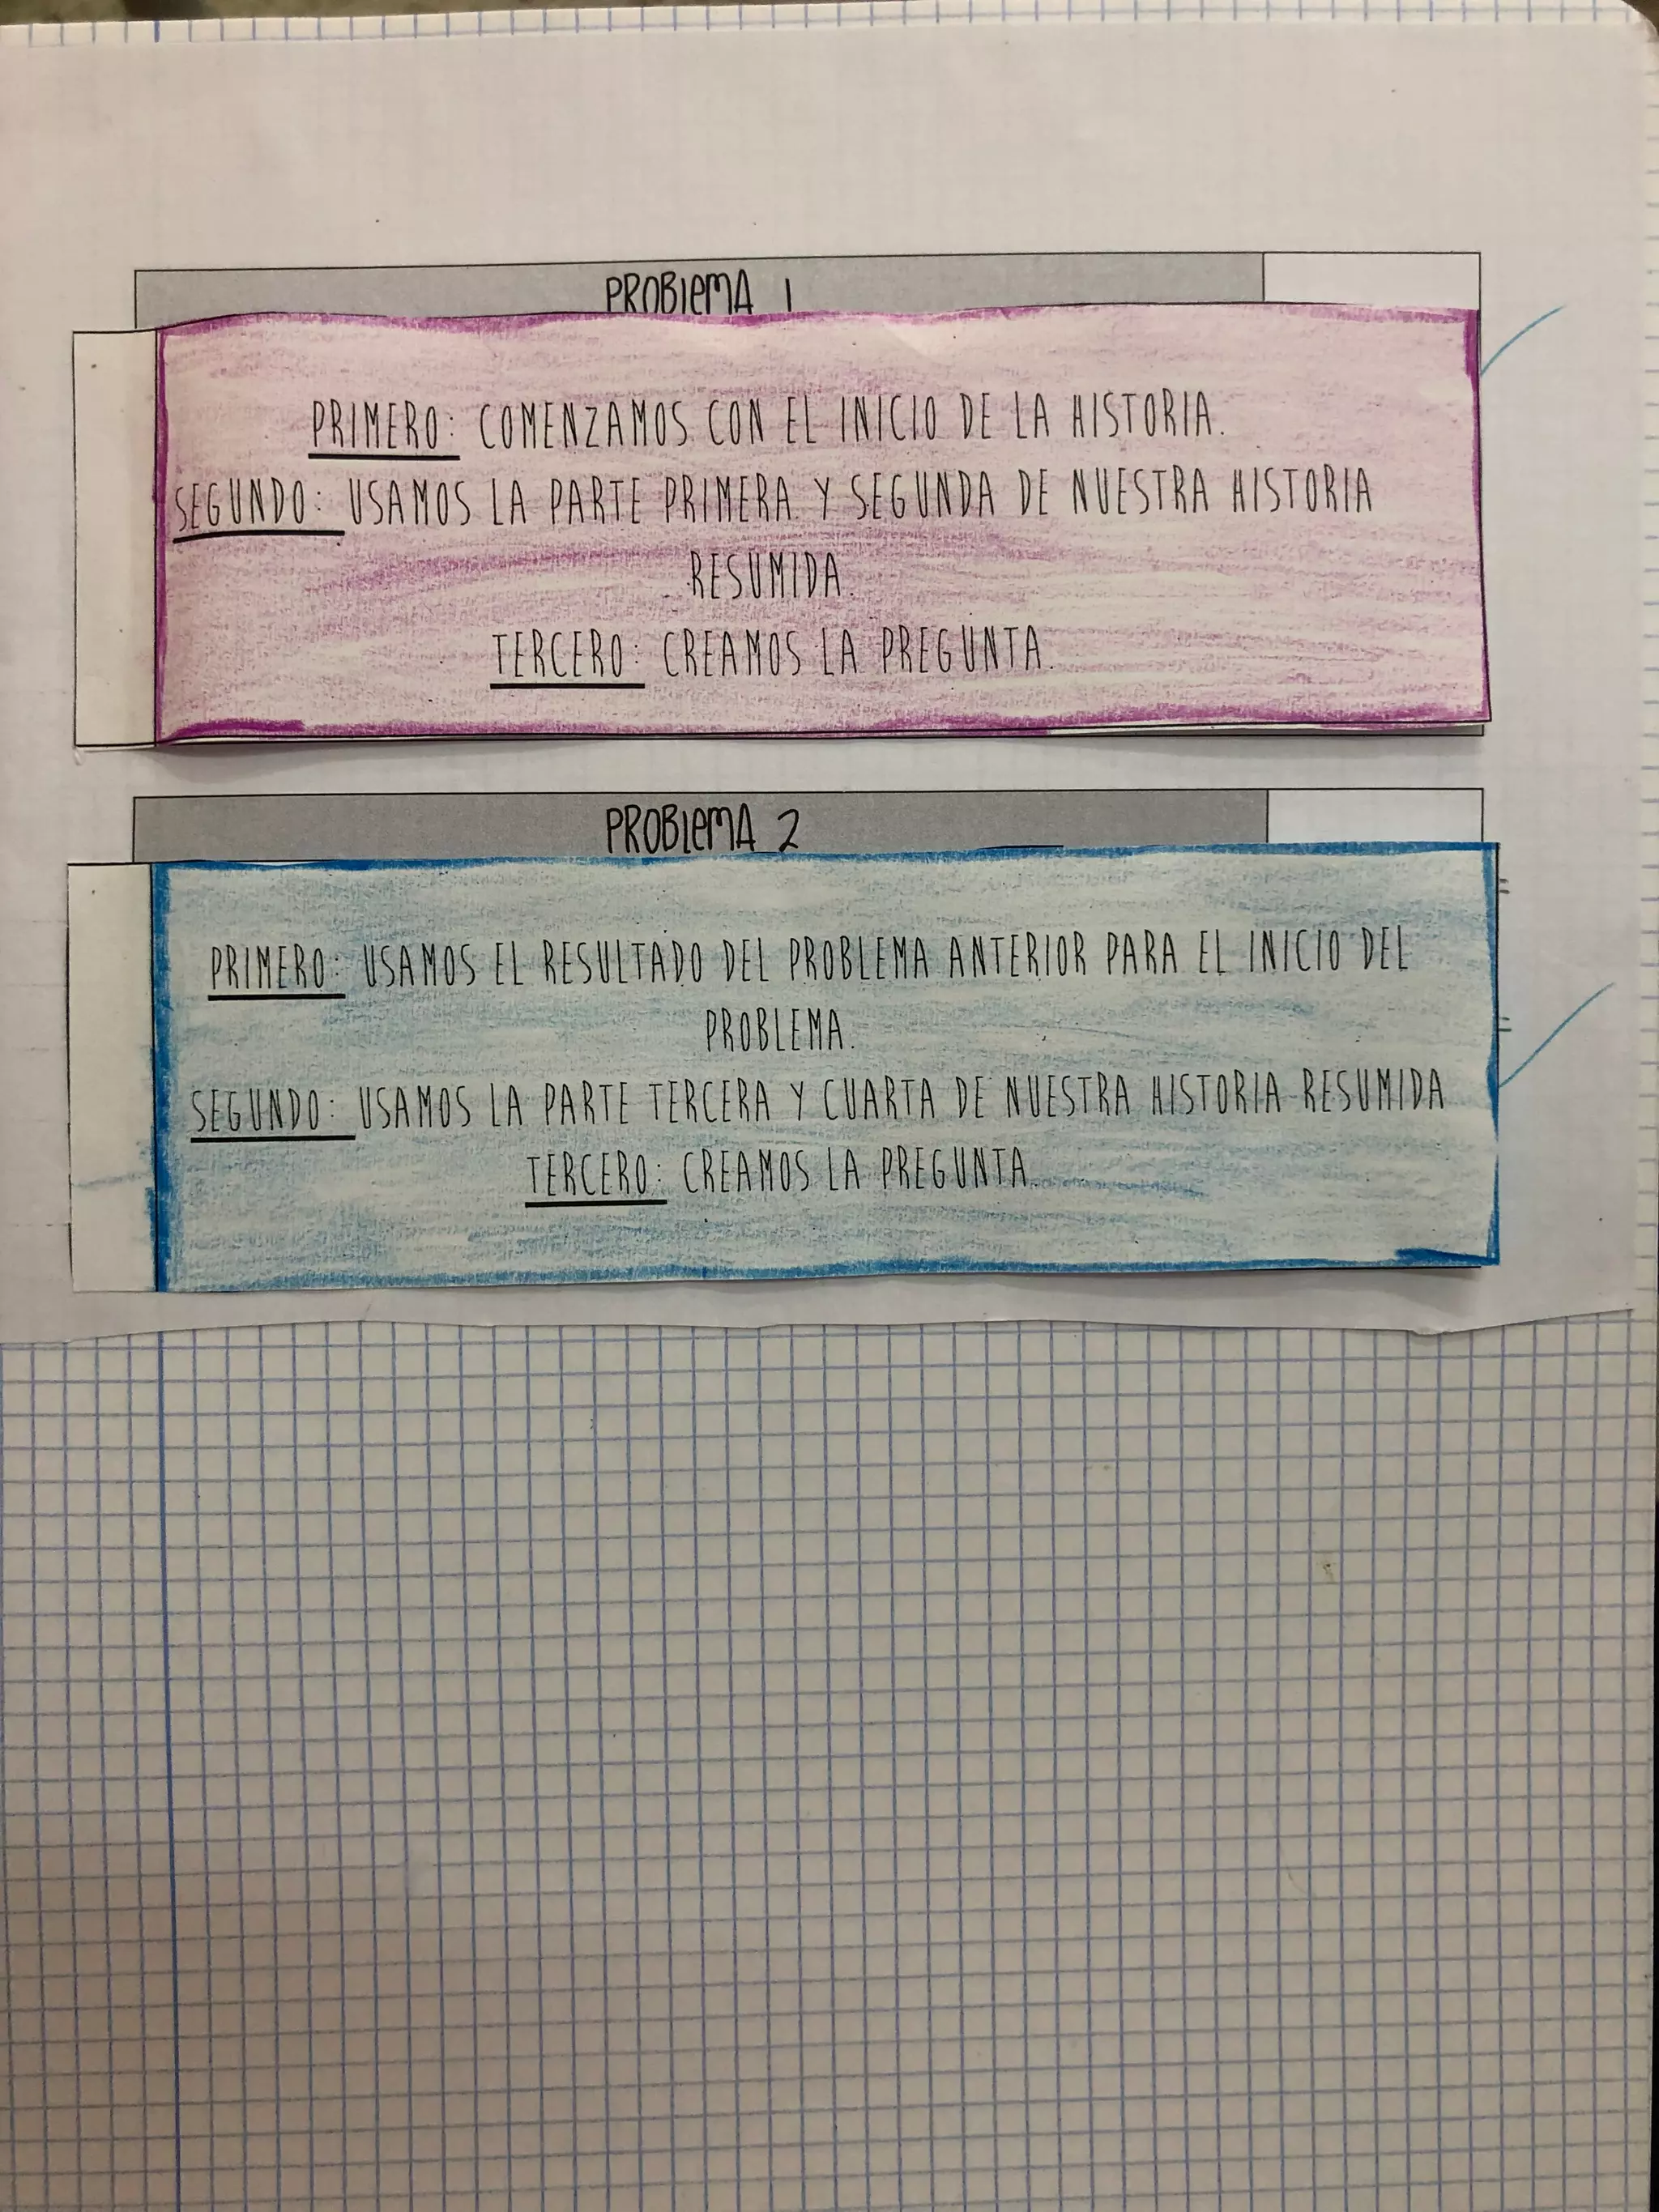 PROBLEMA 1
PRIMERO: COMENZAMOS CON EL INICIO DE LA HISTORIA.
SEGUNDO: USAMOS LA PARTE PRIMERA Y SEGUNDA DE NUESTRA HISTORIA
RESUMIDA.
TERCERO: CREAMOS LA PREGUNTA.
PROBLEMA 2
PRIMERO: USAMOS EL RESULTADO DEL PROBLEMA ANTERIOR PARA EL INICIO DEL
PROBLEMA.
SEGUNDO: USAMOS LA PARTE TERCERA Y CUARTA DE NUESTRA HISTORIA RESUMIDA
TERCERO: CREAMOS LA PREGUNTA.